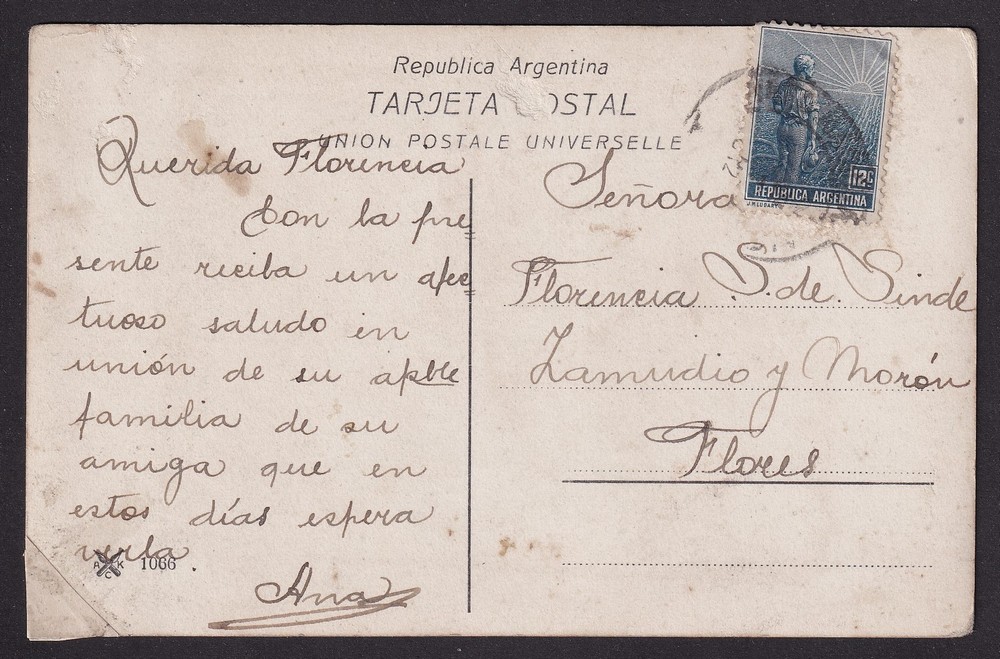 Republica Argentina
TARJETA POSTAL
UNION POSTALE UNIVERSELLE
Querida Florencia
Con la pre
sente reciba un afec
tuoso saludo en
unión de su apble
familia de su
amiga que en
estos días espera
verla
Ana
A K C
1066
12C
REPUBLICA ARGENTINA
Señora
Florencia S. de Sinde
Zamudio y Morón
Flores